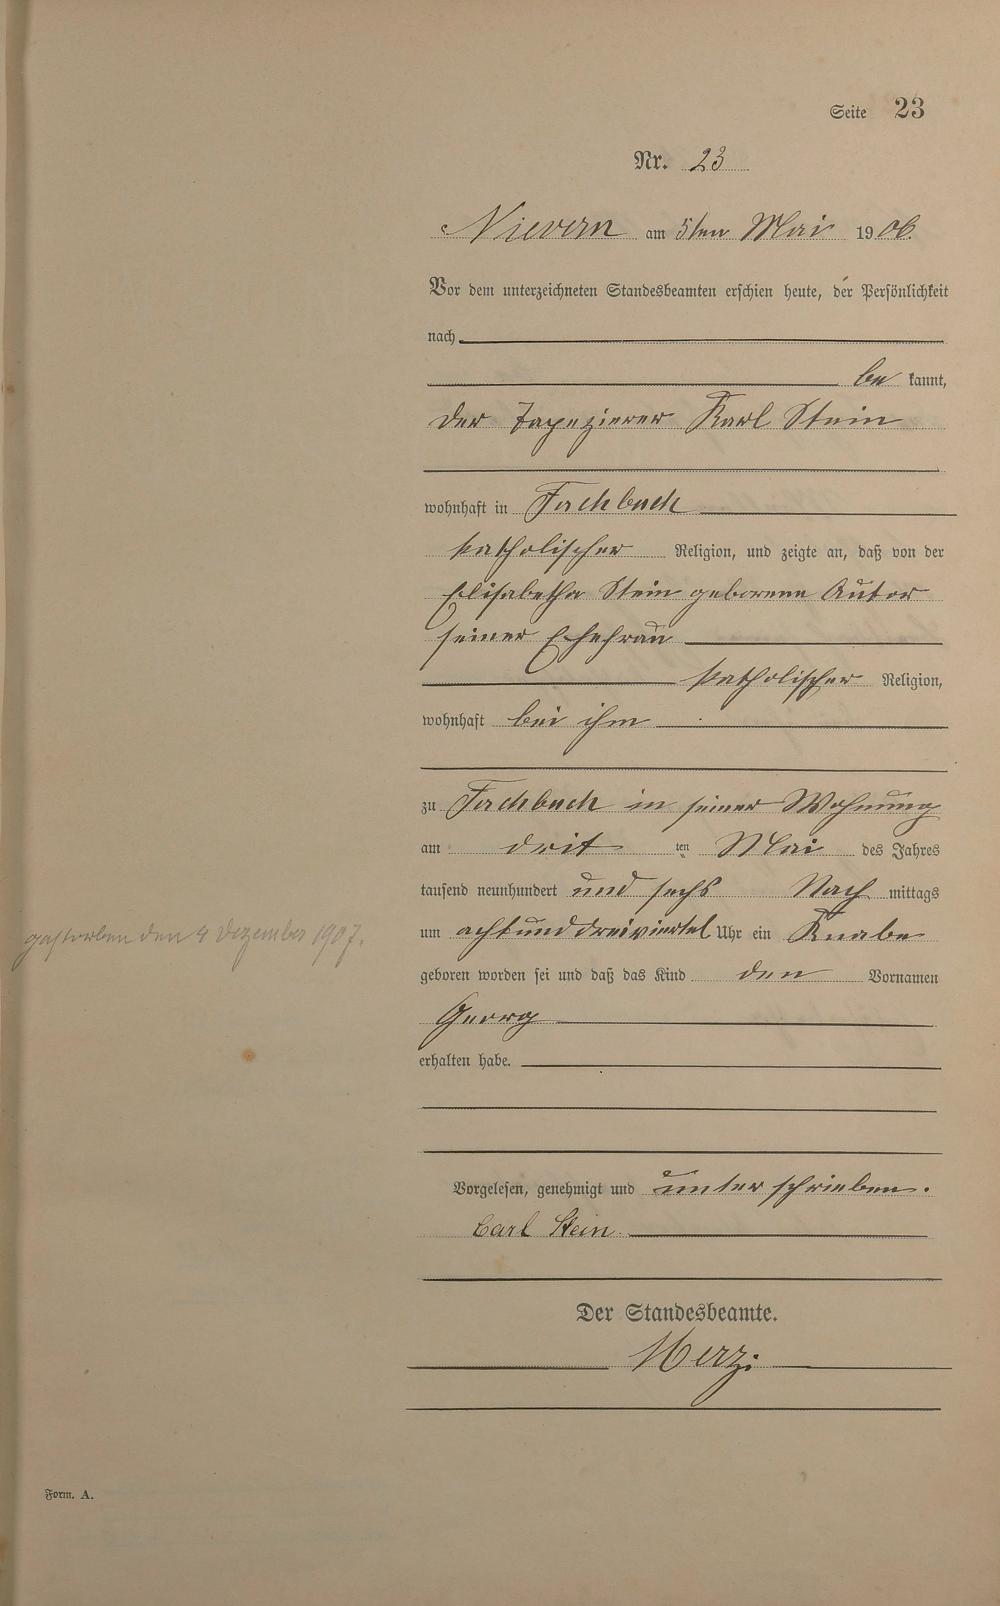 Seite 23
Nr. 23
Nievern am 5ten Mai 1906.
Vor dem unterzeichneten Standesbeamten erschien heute, der Persönlichkeit
nach
be kannt,
der Tapezierer Karl Stein
wohnhaft in Fachbach
katholischer Religion, und zeigte an, daß von der
Elisabetha Stein geborene Autor
seiner Ehefrau
katholischer Religion,
wohnhaft bei ihm
zu Fachbach in seiner Wohnung
am drit ten Mai des Jahres
tausend neunhundert und sechs Nach mittags
um acht und dreiviertel Uhr ein Knabe
geboren worden sei und daß das Kind den Vornamen
gestorben den 4 Dezember 1907.
Georg
erhalten habe.
Vorgelesen, genehmigt und unterschrieben.
Carl Stein
Der Standesbeamte.
Merz
Form. A.